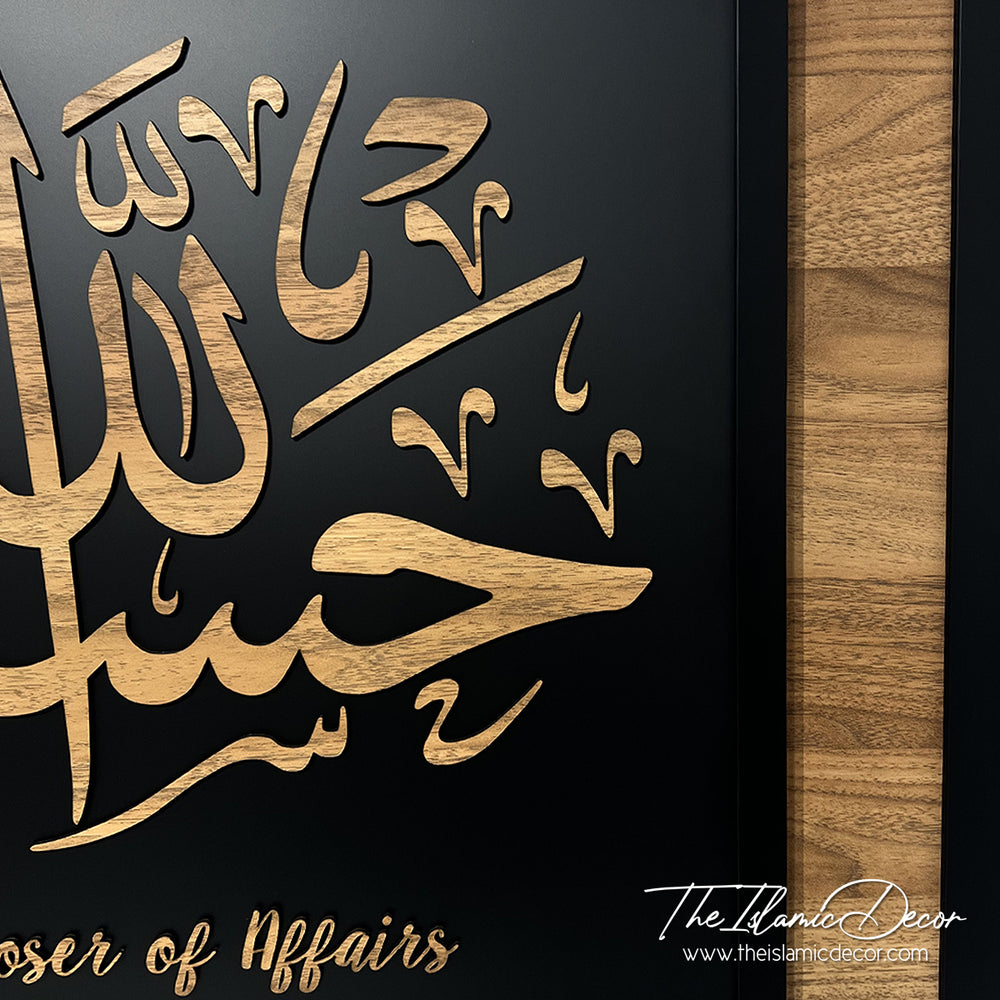 حسبنا الله
oser of Affairs
The Islamic Decor
www.theislamicdecor.com